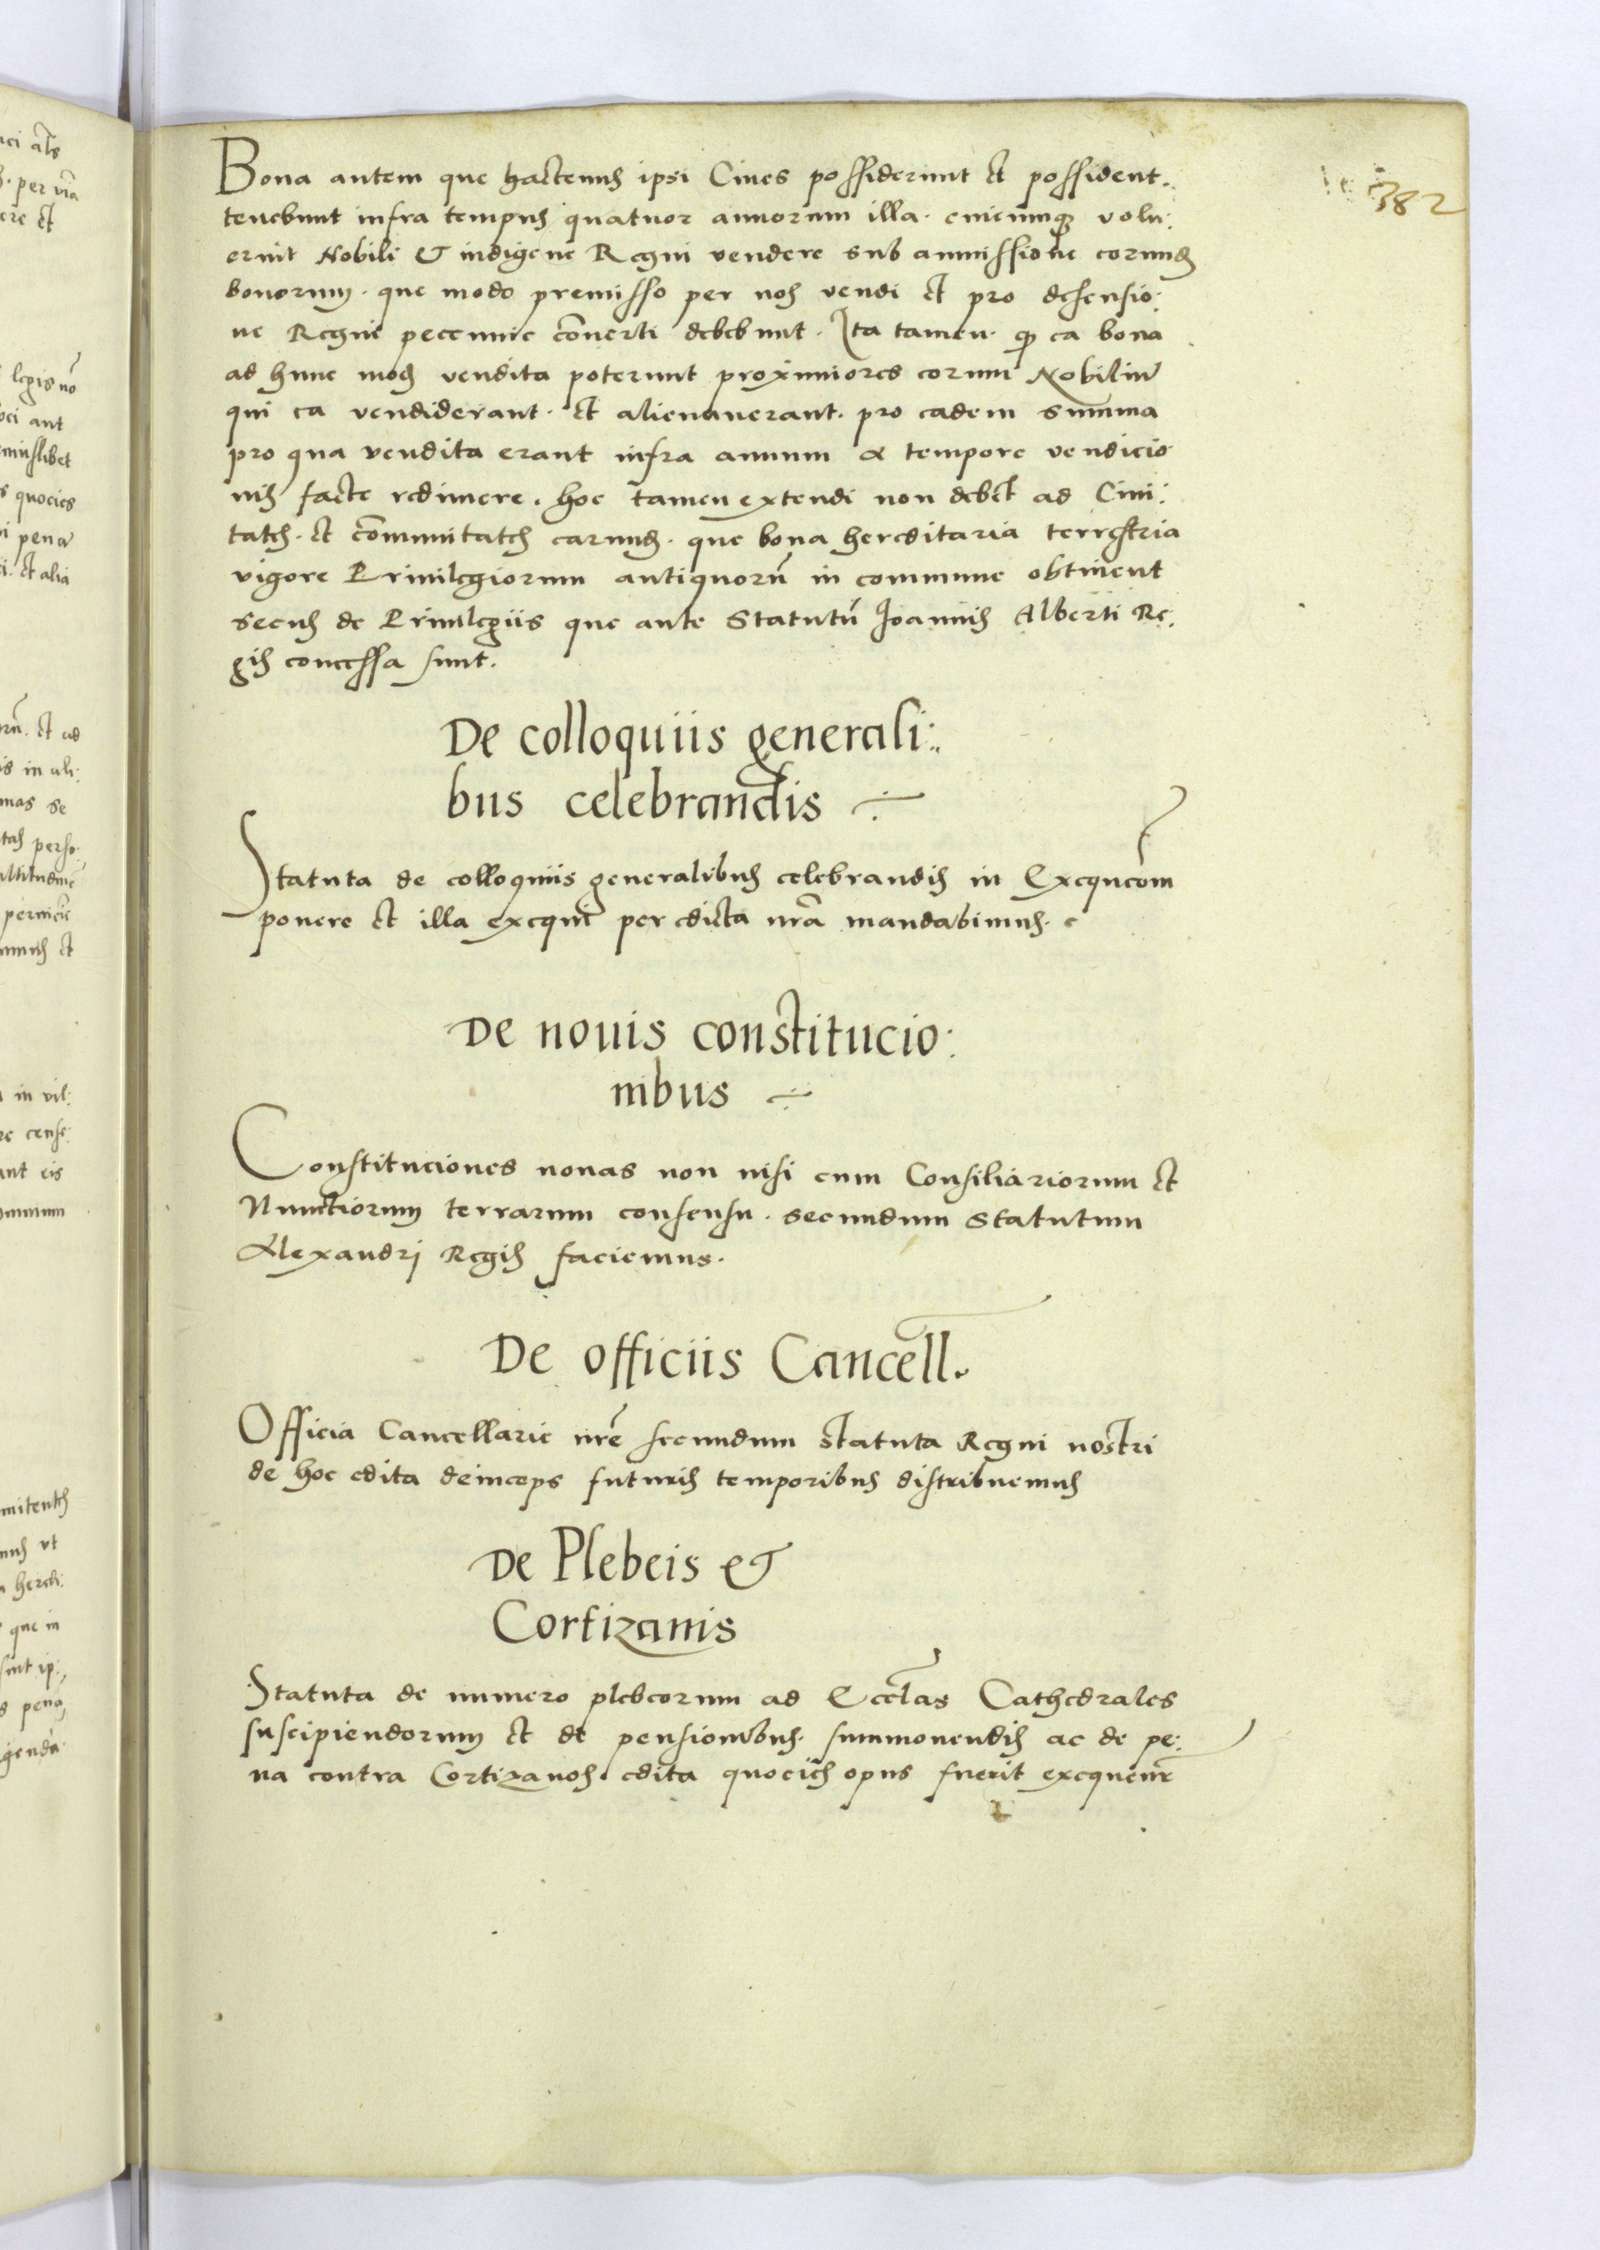 382
Bona autem que hactenus ipsi Ciues possiderunt et possident.
tenebunt infra tempus quatuor annorum illa. cuicumq volu:
erint Nobili & indigene Regni vendere sub ammissione eorund
bonorum. que modo premisso per nos vendi et pro defensio:
ne Regni pecunie conuerti debebunt. Ita tamen. q ea bona
ad hunc mod vendita poterunt proximiores eorum Nobiliu
qui ea vendiderant. et alienauerant. pro eadem summa
pro qua vendita erant infra annum a tempore vendicio
nis facte redimere. hoc tamen extendi non debet ad Ciui:
tates. et comunitates earund. que bona hereditaria terrestria
vigore Priuilegiorum antiquoru in commune obtinent
secus de Priuilegiis que ante Statutu Joannis Alberti Re:
gis concessa sunt.
De colloquiis generali:
bus celebrandis ÷
Statuta de colloquiis generalibus celebrandis in Exequcom
ponere et illa exequi per edicta nra mandabimus.
De nouis constitucio:
nibus ÷
Constituciones nouas non nisi cum Consiliariorum et
Nunctiorum terrarum consensu. secundum statutum
Alexandri Regis faciemus.
De officiis Cancell.
Officia Cancellarie nre secundum statuta Regni nostri
de hoc edita deinceps futuris temporibus distribuemus
De Plebeis &
Cortizanis
Statuta de numero plebeorum ad Ecclas Cathedrales
suscipiendorum et de pensionibus. summouendis ac de pe:
na contra Cortizanos. edita quocies opus fuerit exequemr